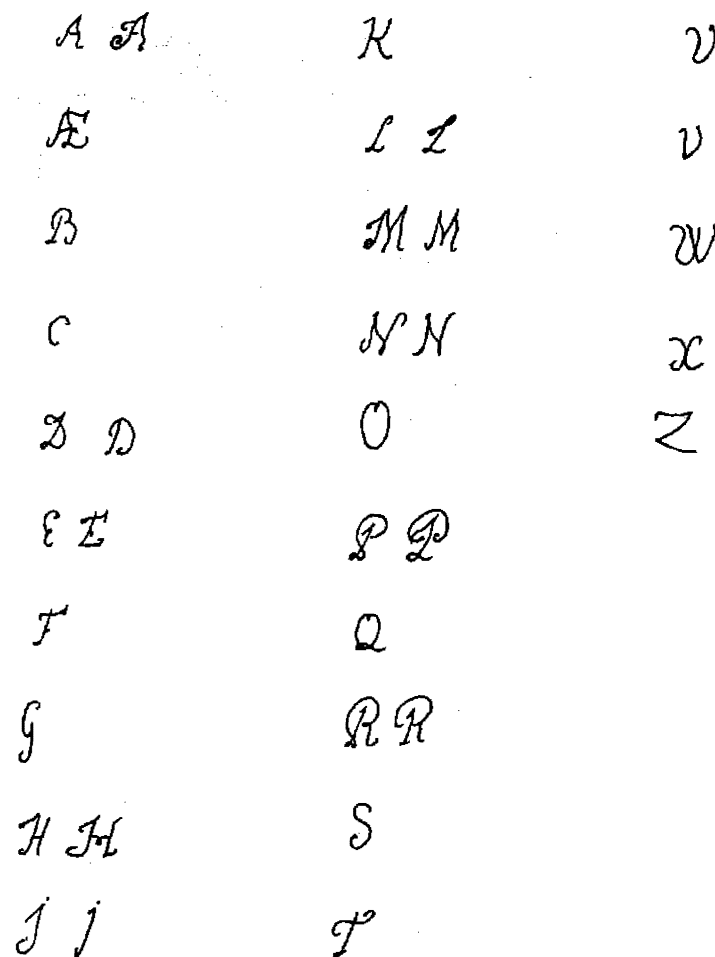 A A
Æ
B
C
D D
E E
F
G
H H
J J
K
L L
M M
N N
O
P P
Q
R R
S
T
V
V
W
X
Z